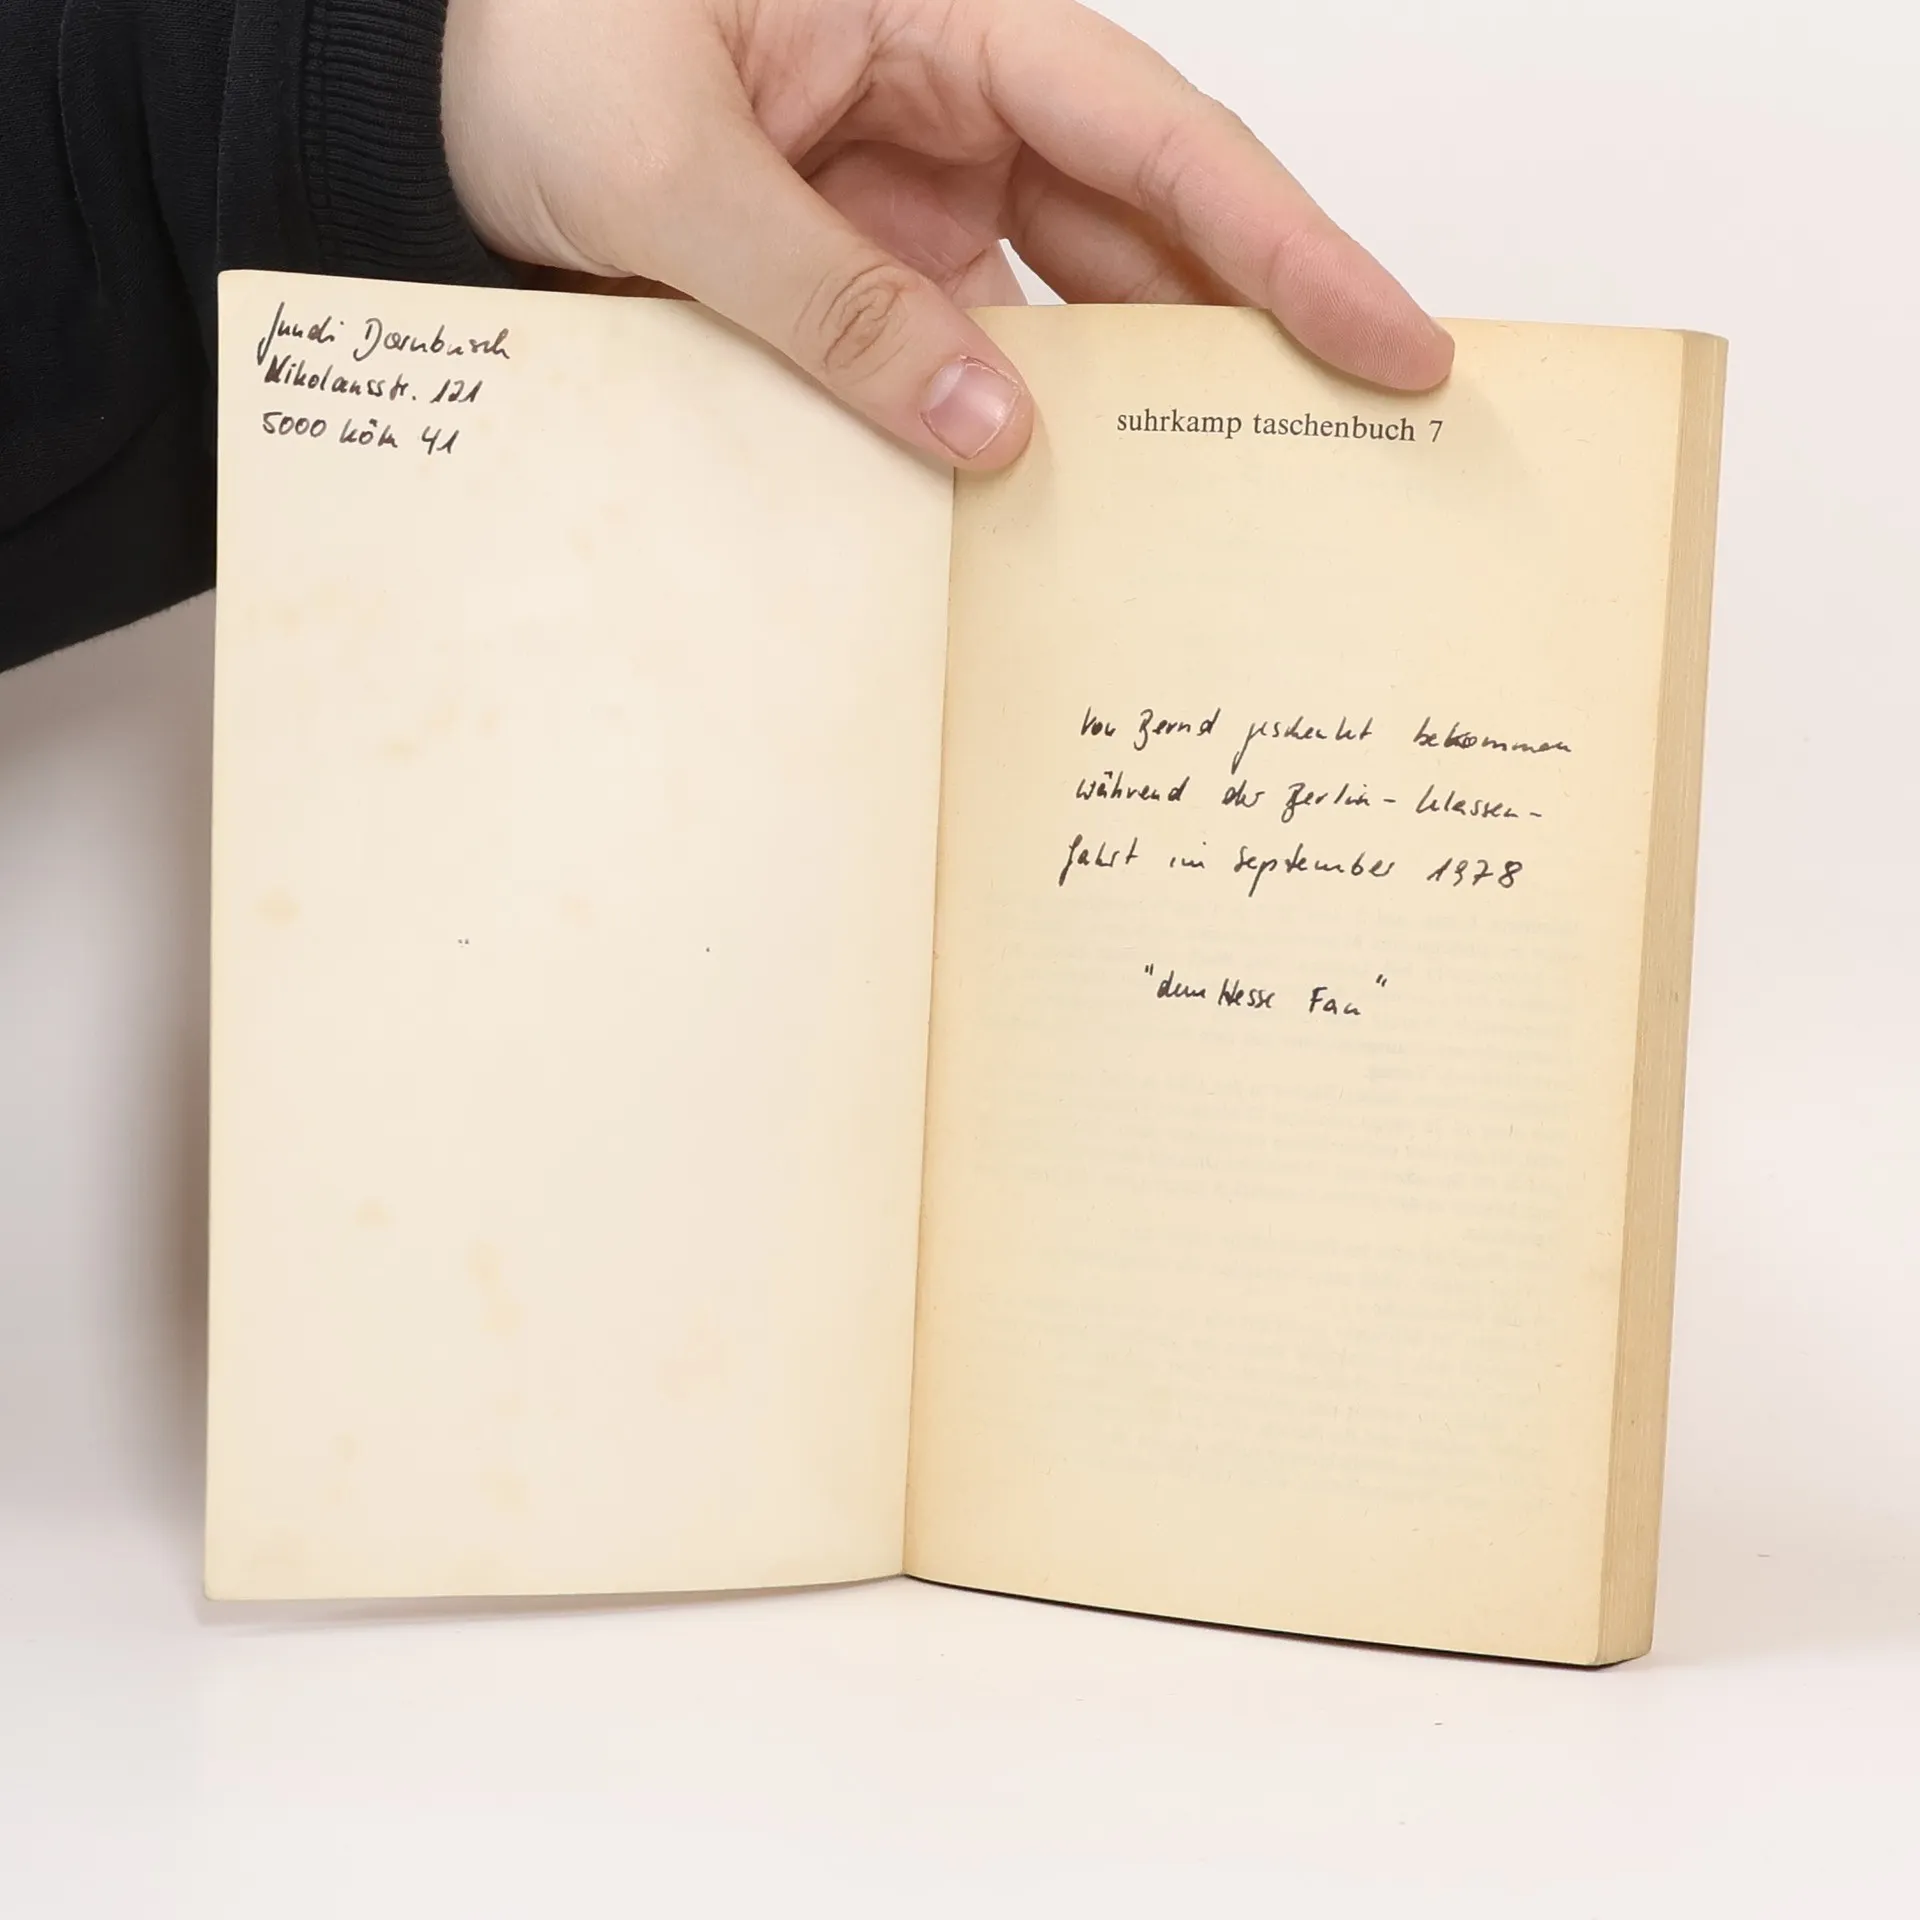 Jundi Dornbusch
Nikolausstr. 121
5000 Köln 41
suhrkamp taschenbuch 7
von Bernd geschenkt bekommen
während der Berlin-Klassen-
fahrt im September 1978
"dem Hesse Fan"